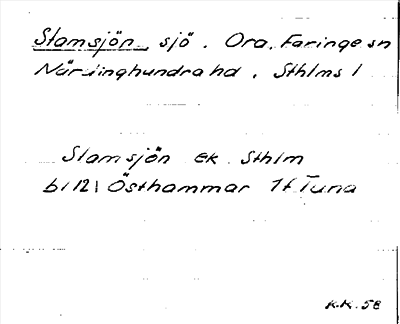 Stamsjön, sjö. Ora, Faringe sn
Närdinghundra hd, Sthlms l
Slamsjön ek Sthlm
bl 121 Östhammar 1t Tuna
K.K. 58